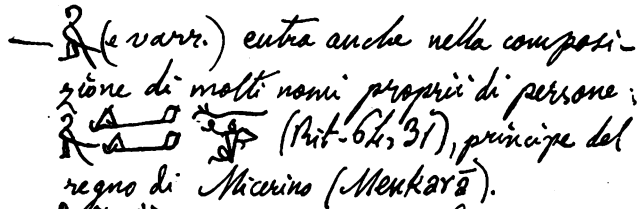 — 𓀀 (e varr.) entra anche nella composi-
zione di molti nomi proprii di persone:
(Rit. 64, 31), principe del
regno di Micerino (Menkarā).